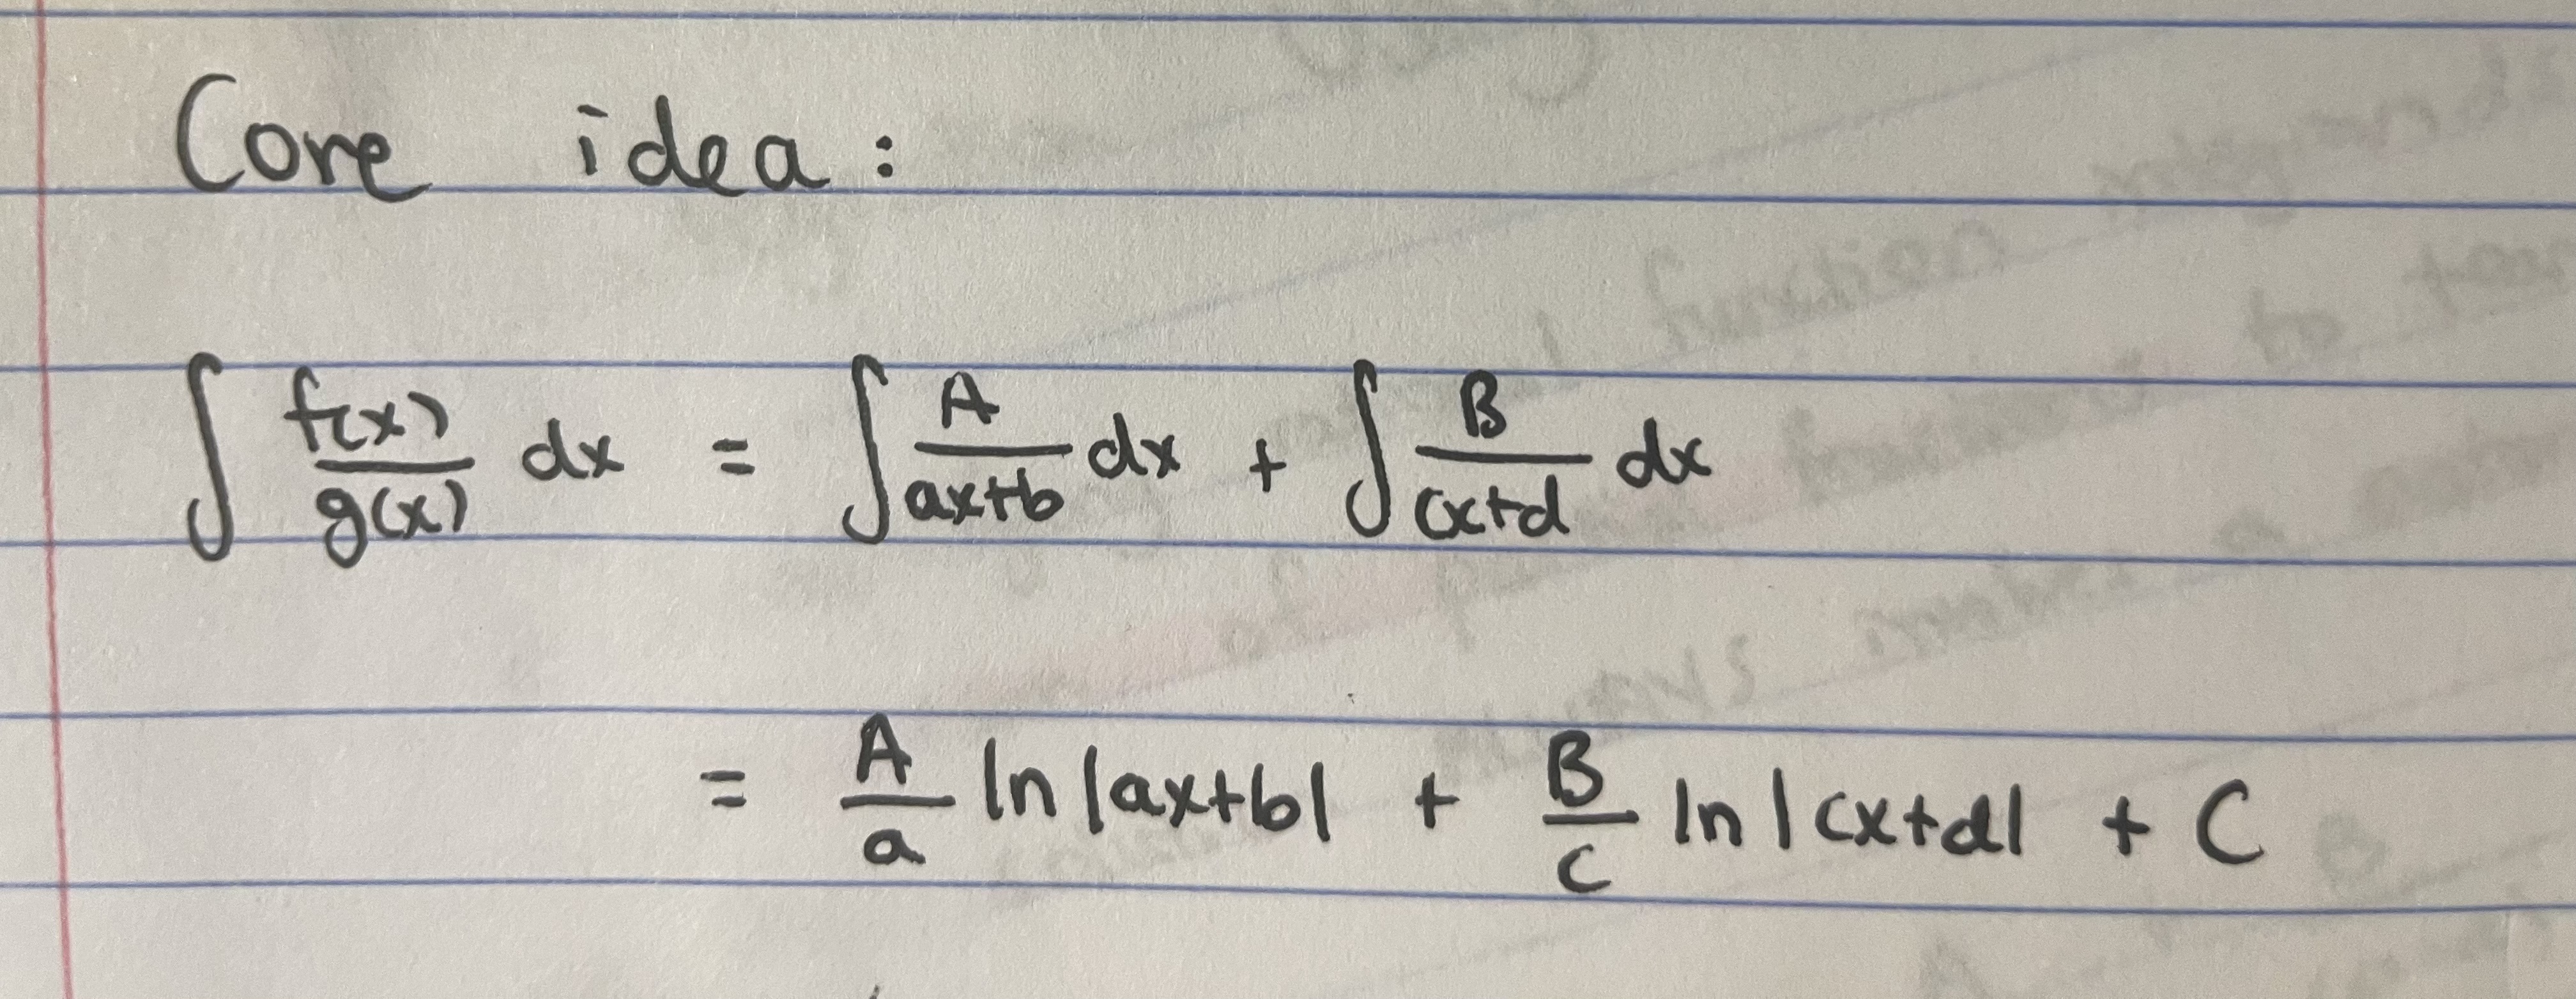 Core idea:
∫ f(x)/g(x) dx = ∫ A/(ax+b) dx + ∫ B/(cx+d) dx
= A/a ln|ax+b| + B/c ln|cx+d| + C